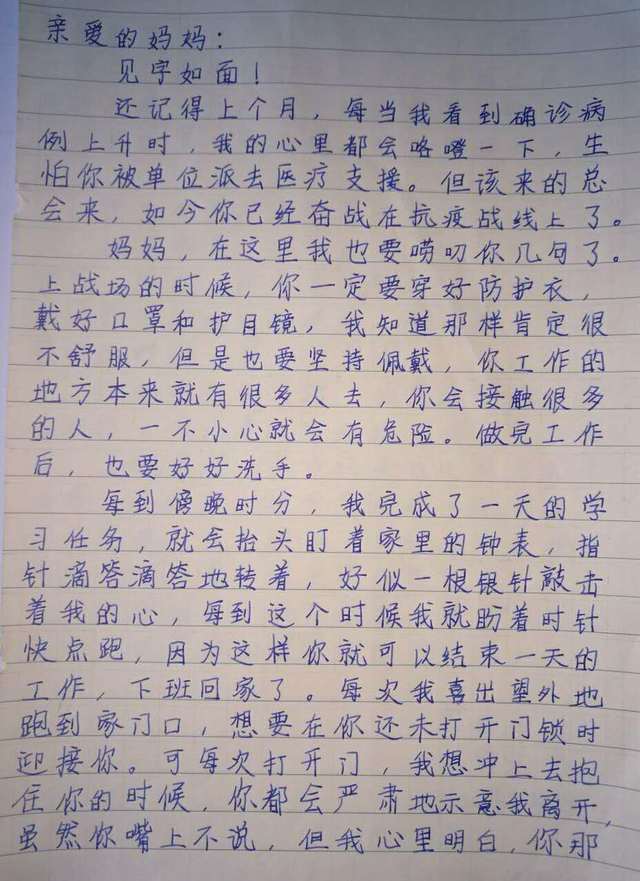 亲爱的妈妈：
见字如面！
还记得上个月，每当我看到确诊病
例上升时，我的心里都会咯噔一下，生
怕你被单位派去医疗支援。但该来的总
会来，如今你已经奋战在抗疫战线上了。
妈妈，在这里我也要唠叨你几句了。
上战场的时候，你一定要穿好防护衣，
戴好口罩和护目镜，我知道那样肯定很
不舒服，但是也要坚持佩戴，你工作的
地方本来就有很多人去，你会接触很多
的人，一不小心就会有危险。做完工作
后，也要好好洗手。
每到傍晚时分，我完成了一天的学
习任务，就会抬头盯着家里的钟表，指
针滴答滴答地转着，好似一根银针敲击
着我的心，每到这个时候我就盼着时针
快点跑，因为这样你就可以结束一天的
工作，下班回家了。每次我喜出望外地
跑到家门口，想要在你还未打开门锁时
迎接你。可每次打开门，我想冲上去抱
住你的时候，你都会严肃地示意我离开，
虽然你嘴上不说，但我心里明白，你那